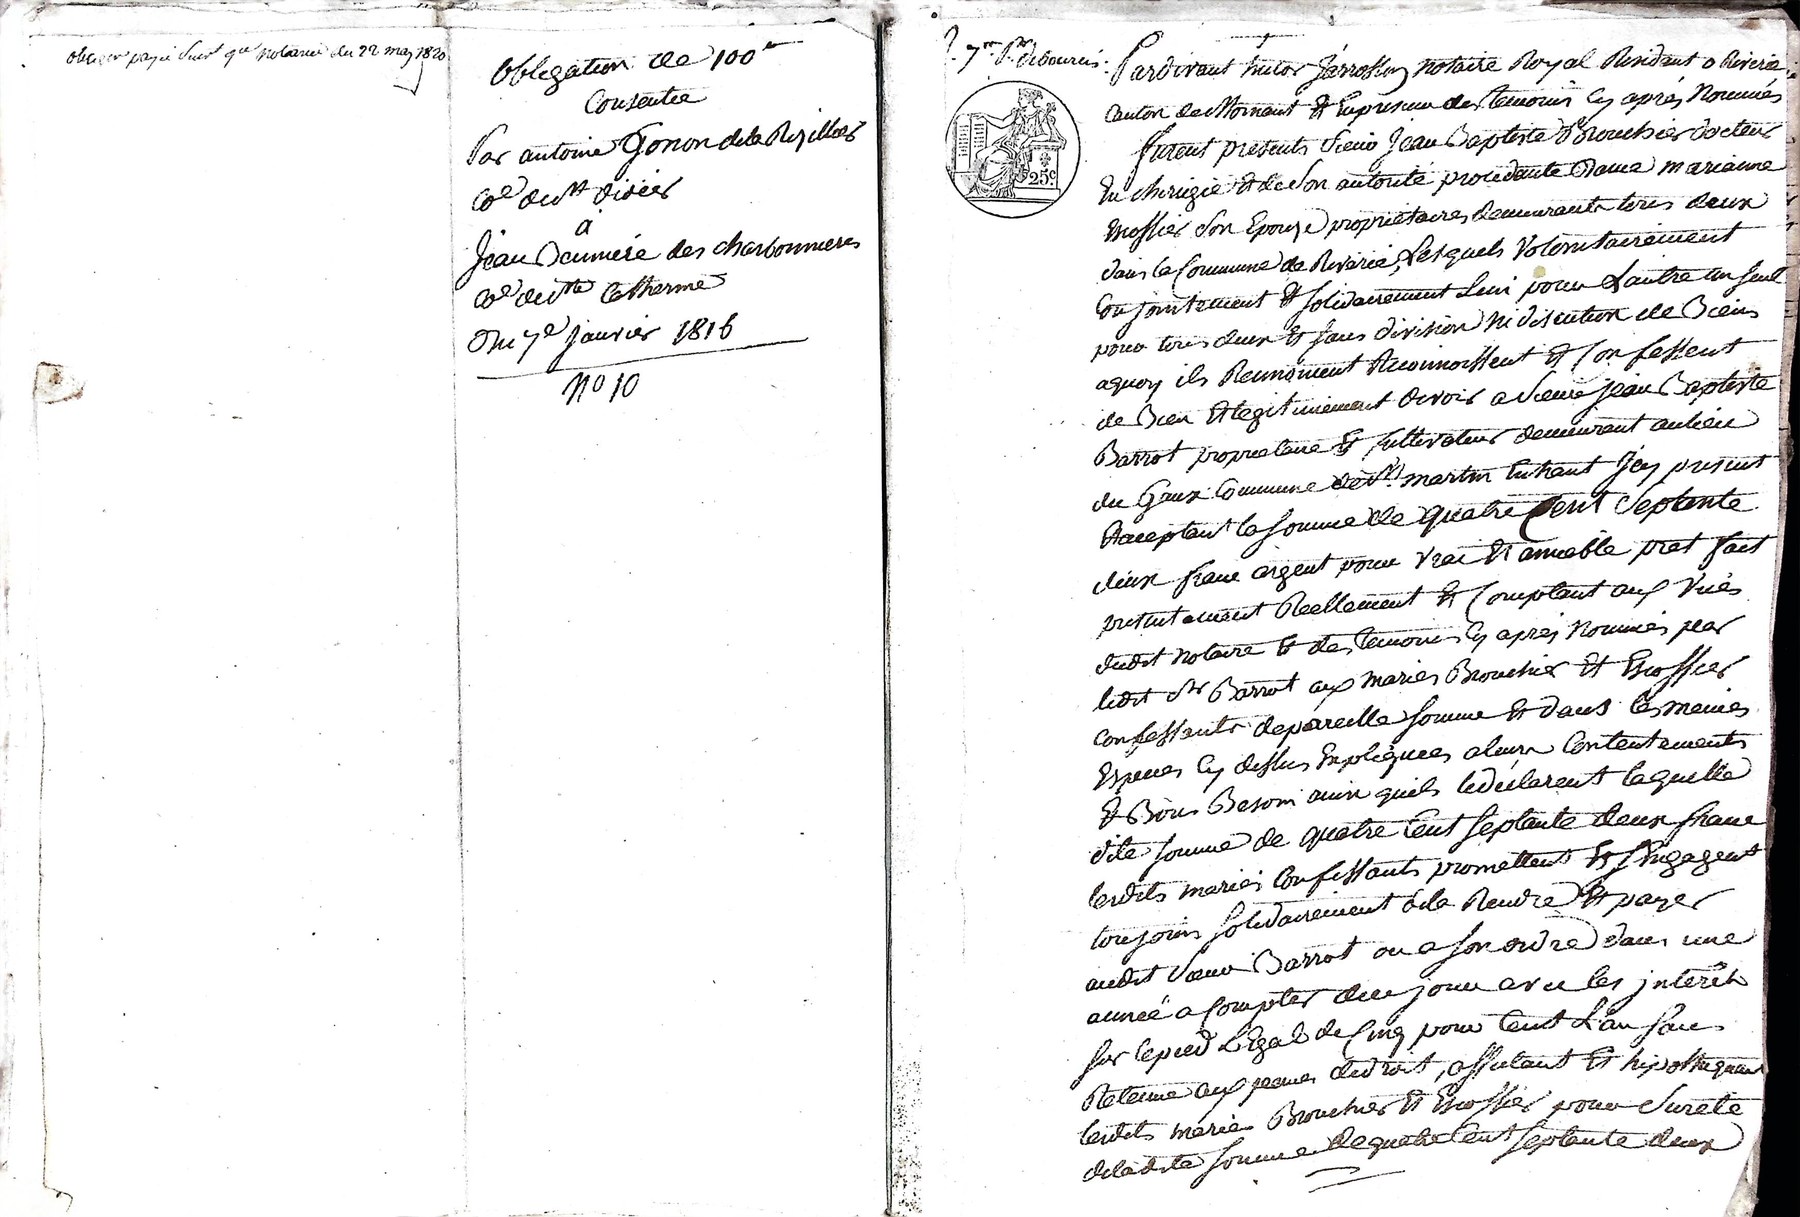 obligon payé suivt qce notariée du 22 may 1820
Obligation de 100 fr
Consentie
Par antoine Gonon de la Rizilliere
Coe de St didier
à
Jean Dumiere des charbonnieres
Coe de Ste Catherine
Du 7e janvier 1816
No 10
25c
Pardevant Jarrosson notaire Royal Residant a Riverie
Canton de Mornant Et En presence des temoins Cy aprés Nommés
furent presents Sieur Jean Baptiste Brouchier docteur
En chirugie Et de Son autorité procedante Dame marianne
Escoffier Son Epouze proprietaires demeurants tous deux
dans la Commune de Riverie, Lesquels Volontairement
Conjointement Et Solidairement L'un pour L'autre un seul
pour tous deux Et sans division Ni discution de Biens
aquoy ils Renoncent Reconnoissent Et Confessent
de Bien Et legitimement devoir a Sieur jean Baptiste
Barrot proprietaire Et Cultivateur demeurant au lieu
du Commune de St martin En haut Jcy present
Et aceptant la somme de quatre Cent Septente
deux franc argent pour vrai Et amiable pret fait
presentement Reellement Et Comptant aux Vües
dudit Notaire Et des temoins Cy aprés Nommés par
ledit Sr Barrot aux mariés Brouchier Et Escoffier
confessants de pareille somme Et dans les mêmes
Especes Cy dessus Expliquées a leurs Contentements
Et Bons Besoin ainsi quils le déclarent laquelle
dite somme de quatre Cent septante deux franc
lesdits mariés Confessants promettent Et s'Engagent
toujours solidairement à la Rendre Et payer
audit Sieur Barrot ou a son ordre dans une
année a compter du jour avec les jnterêts
sur le pied Légal de Cinq pour Cent L'an sans
Retenue aux peines de droit, affectant Et hipothequant
lesdits mariés Brouchier Et Escoffier pour Sureté
de ladite somme de quatre Cent septante deux